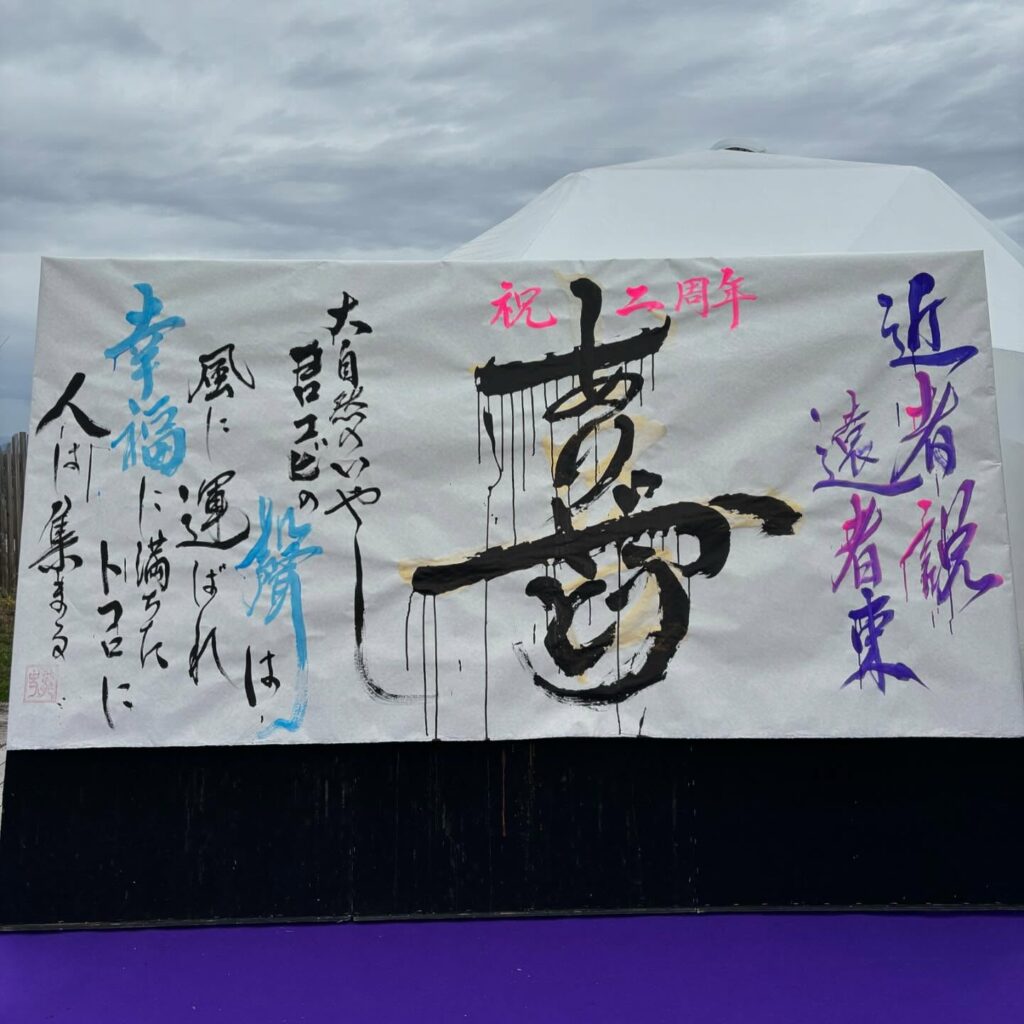 近者説
遠者來
祝二周年
ありがとう
大自然のいやし
ヨロコビの
聲は
風に
運ばれ
幸福に満ちた
トコロに
人は
集まる